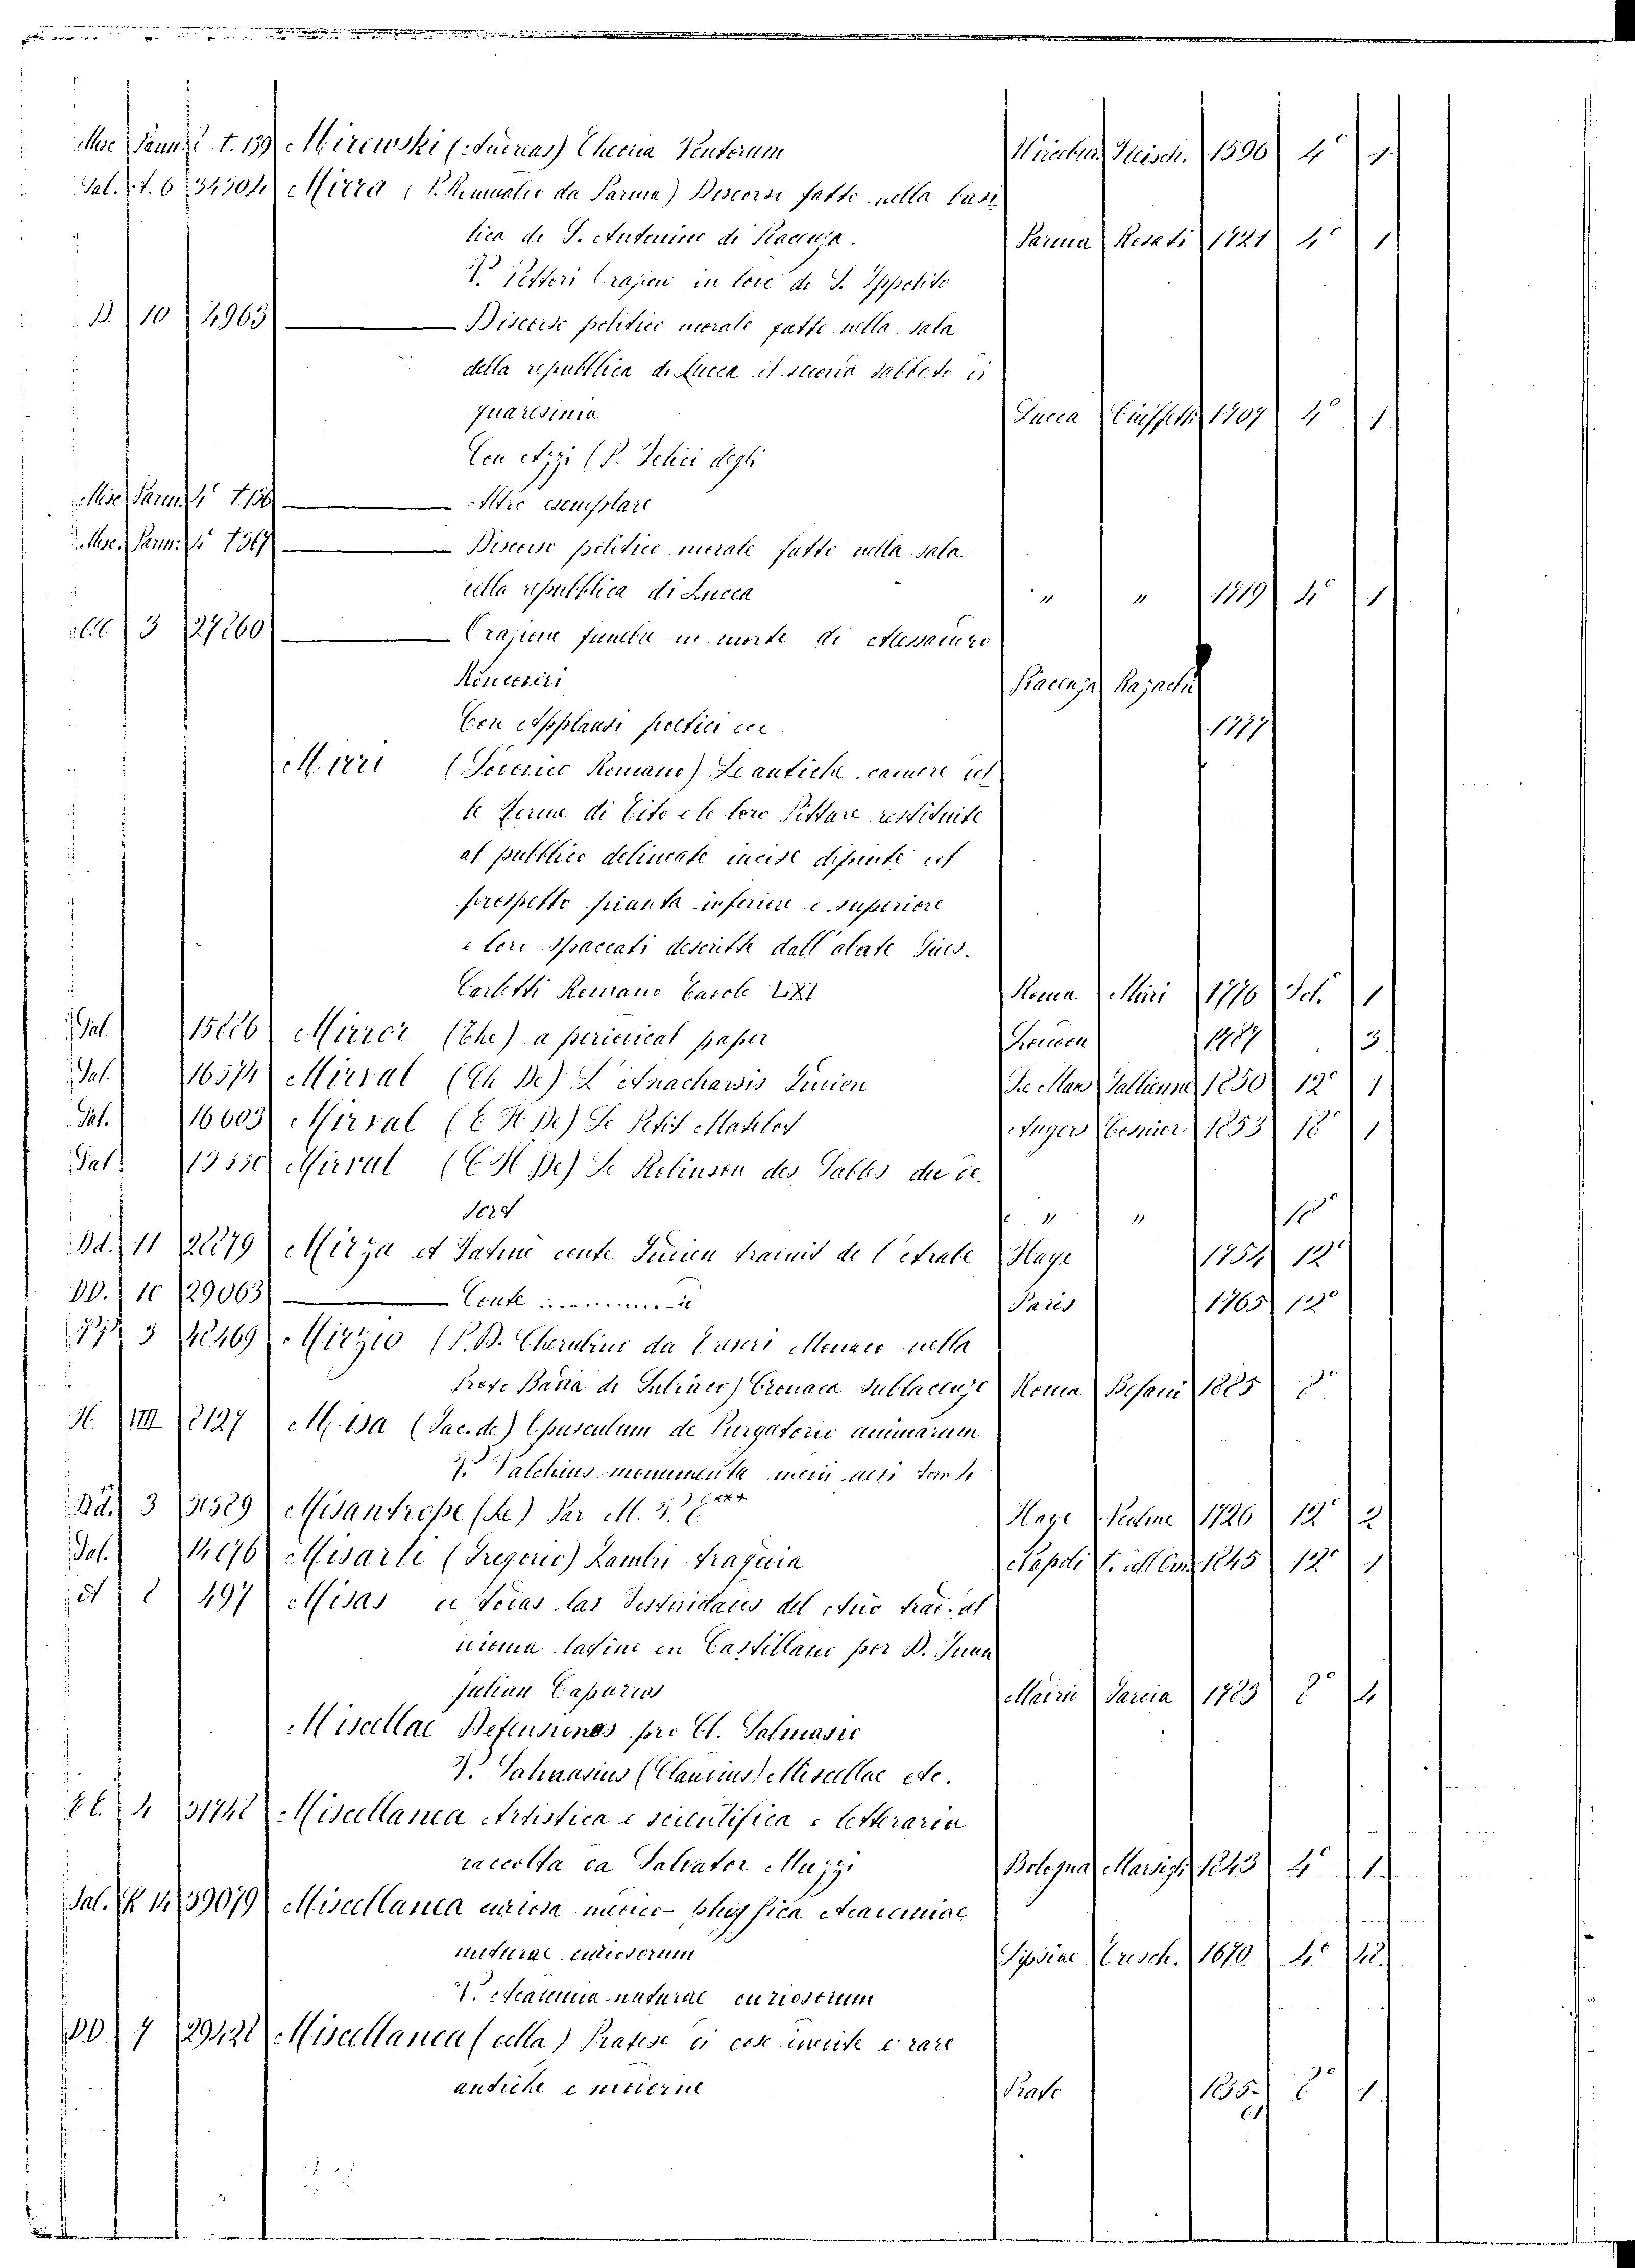 Misc Parm. t. 139 Mirowski (Andreas) Theoria Ventorum 1596 4° 1
Sal. t. 6 34304 Mirra (P. Romualdo da Parma) Discorso fatto nella basi
lica di S. Antonino di Piacenza. Parma Rosati 1721 4° 1
V. Vettori Orazioni in lode di S. Ippolito
D. 10 4963 Discorso politico morale fatto nella sala
della repubblica di Lucca il secondo sabbato di
quaresima Lucca 1707 4° 1
Con Azzi (P. degli
Misc. Parm. 4° t. 136 Altro esemplare
Misc. Parm. 4° t. 367 Discorso politico morale fatto nella sala
della repubblica di Lucca " " 1719 4° 1
3 27260 Orazione funebre in morte di Alessandro
Roncoveri Piacenza Bazachi
Con Applausi poetici ecc. 1777
Mirri (Lodovico Romano) Le antiche camere del
le terme di Tito e le loro Pitture restituite
al pubblico delineate incise dipinte col
prospetto pianta inferiore e superiore
e loro spaccati descritte dall'abate Gius.
Carletti Romano Tavole LXI Roma Mirri 1776 fol. 1
Sal. 15226 Mirror (The) a periodical paper London 1787 3
Sal. 16574 Mirval (Ch De) L'Anacharsis Indien Le Mans Gallienne 1850 12° 1
Sal. 16603 Mirval (C H De) Le Petit Matelot Angers Cosnier 1853 18° 1
Sal. 13550 Mirval (C H De) Le Robinson des Sables du de
sert " " 18°
Dd. 11 22279 Mirza et Fatmé conte Indien traduit de l'Arabe Haye 1754 12°
DD. 10 29063 Conte Paris 1765 12°
3 42469 Mirzio (P. D. Cherubino da Treviri Monaco nella
Proto Badia di Subiaco) Cronaca Sublacense Roma Befani 1885 8°
H. IIII 2127 Misa (Jac. de) Opusculum de Purgatorio animarum
V. Valchius monimenta medii aevi tom 1
Dd. 3 31529 Misantrope (Le) Par M. V. E*** Haye Neaulme 1726 12° 2
Sal. 14076 Misarti (Gregorio) Zambri tragedia Napoli 1845 12° 1
A 2 497 Misas de todas las festividades del Año trad. al
idioma latino en Castellano por D. Juan
Julian Caparros Madrid Garcia 1783 8° 4
Miscellae Defensiones pro Cl. Salmasio
V. Salmasius (Claudius) Miscellae etc.
4 31742 Miscellanea Artistica e scientifica e letteraria
raccolta da Salvator Muzzi Bologna Marsigli 1843 4° 1
Sal. K 14 39079 Miscellanea curiosa medico-physica Academiae
naturae curiosorum Lipsiae 1670 4° 42
V. Academia naturae curiosorum
DD 7 29422 Miscellanea (della) Pratese di cose inedite e rare
antiche e moderne Prato 1855-61 8° 1